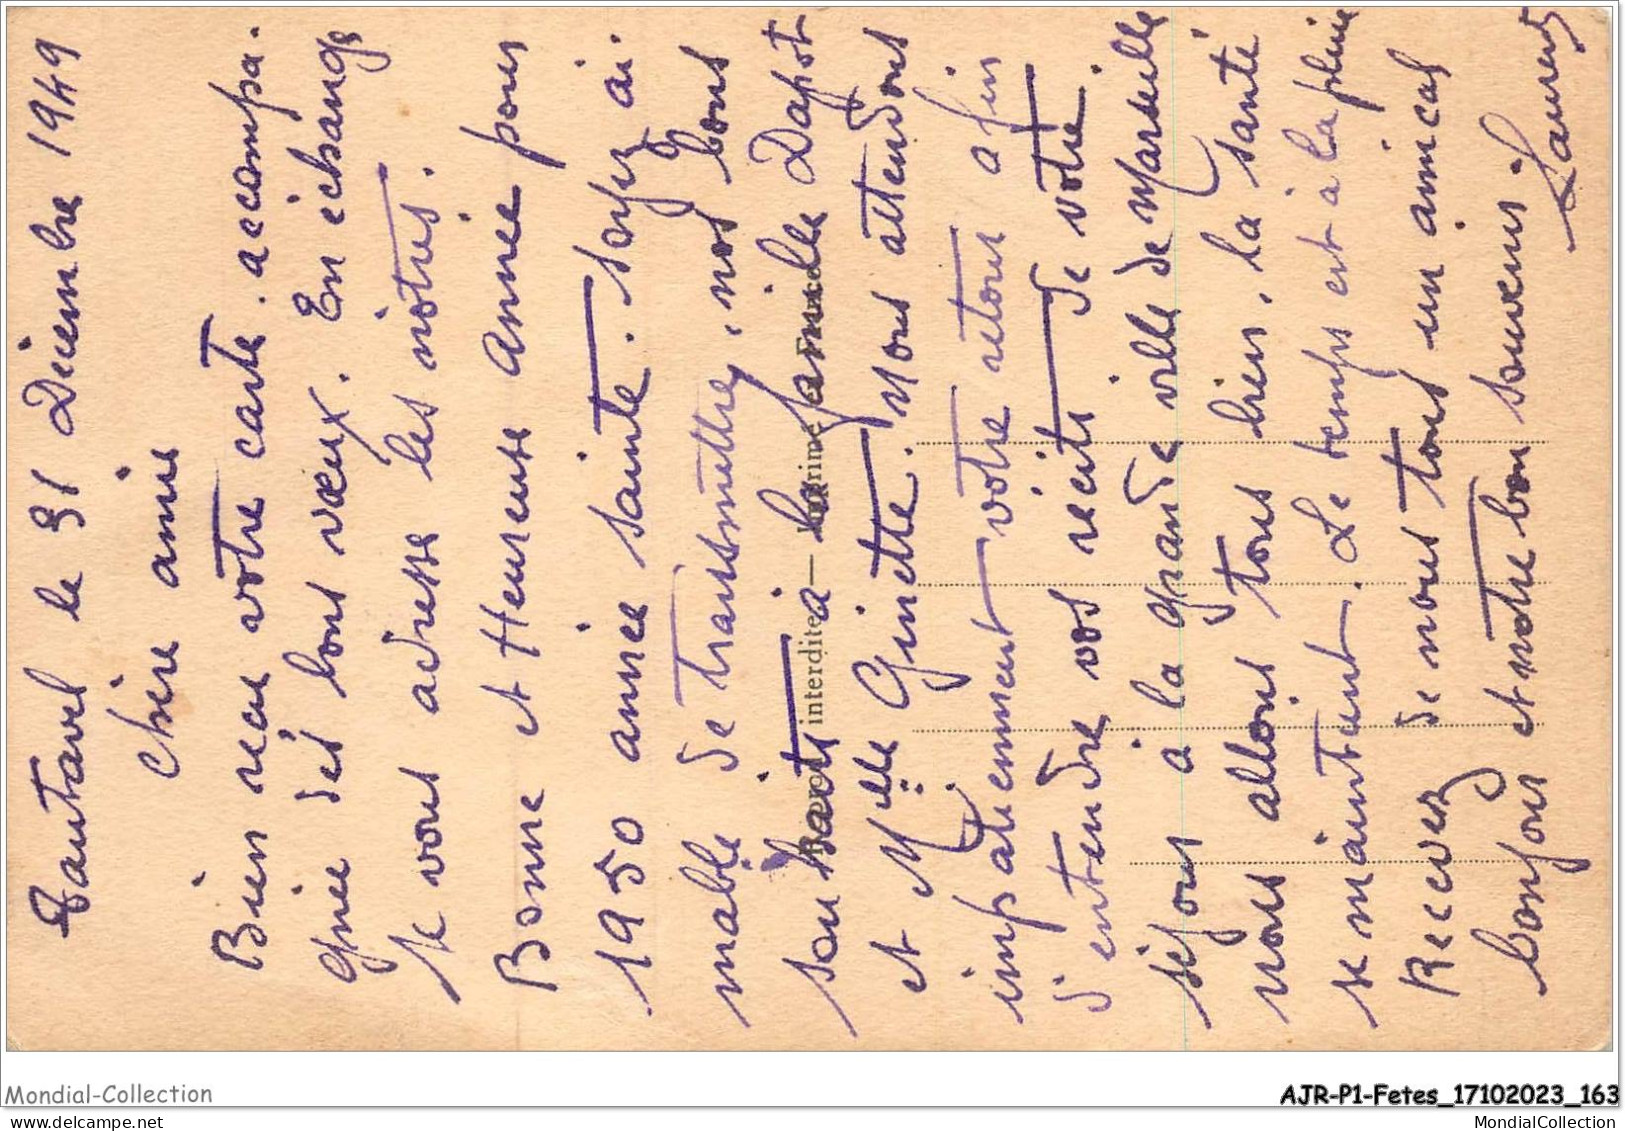 Tautavel le 31 Décembre 1949
Chère amie
Bien reçu votre carte. accompa.
gnée des bons vœux. En échange
Je vous adresse les nôtres.
Bonne et Heureuse Année pour
1950 année sainte. Soyez ai.
mable de transmettre, nos bons
souhaits à la famille Dapot
et Melle Ginette. Nous attendons
impatiemment votre retour afin
d'entendre vos récits de votre
séjour à la grande ville de Marseille
nous allons tous bien, la santé
se maintient. Le temps est à la pluie
Recevez de nous tous un amical
bonjour et notre bon souvenir.
Reprod. interdite — Imprimé en France
Mondial-Collection
AJR-P1-Fetes_17102023_163
www.delcampe.net
MondialCollection